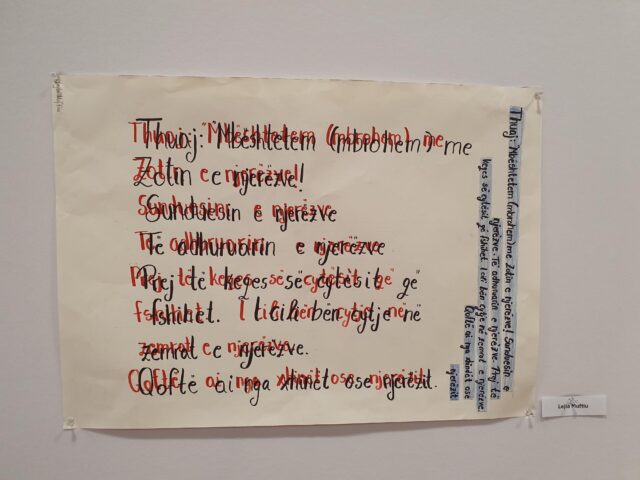 Thuaj: "Mbështetem (mbrohem) me
Zotin e njerëzve!
Sunduesin e njerëzve
Të adhuruarin e njerëzve
Prej të keqes së cytësit që
fshihet. I cili bën cytje në
zemrat e njerëzve.
Qoftë ai nga xhinët ose njerëzit.
Thuaj: Mbështetem (mbrohem) me Zotin e njerëzve! Sunduesin e
njerëzve. Të adhuruarin e njerëzve. Prej të
keqes së cytësit që fshihet. I cili bën cytje në zemrat e njerëzve.
Qoftë ai nga xhinët ose
njerëzit.
Lejla Muftiu